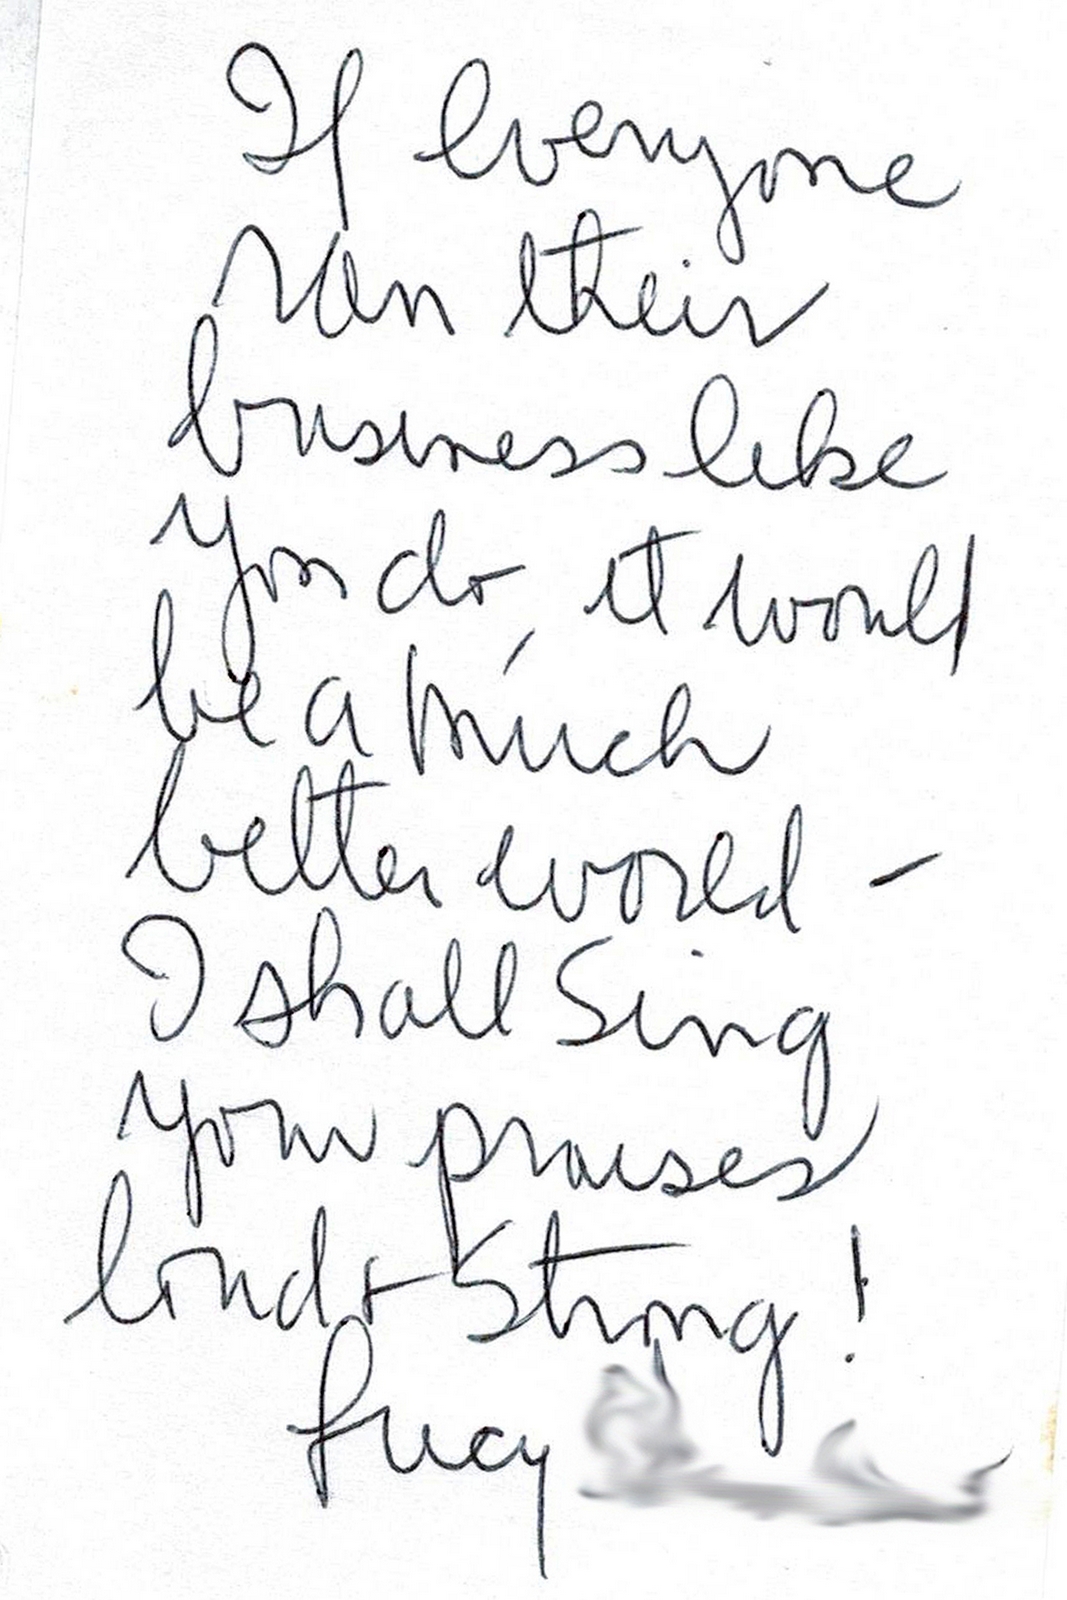 If everyone
ran their
business like
you do, it would
be a much
better world -
I shall Sing
your praises
loud & Strong!
Lucy